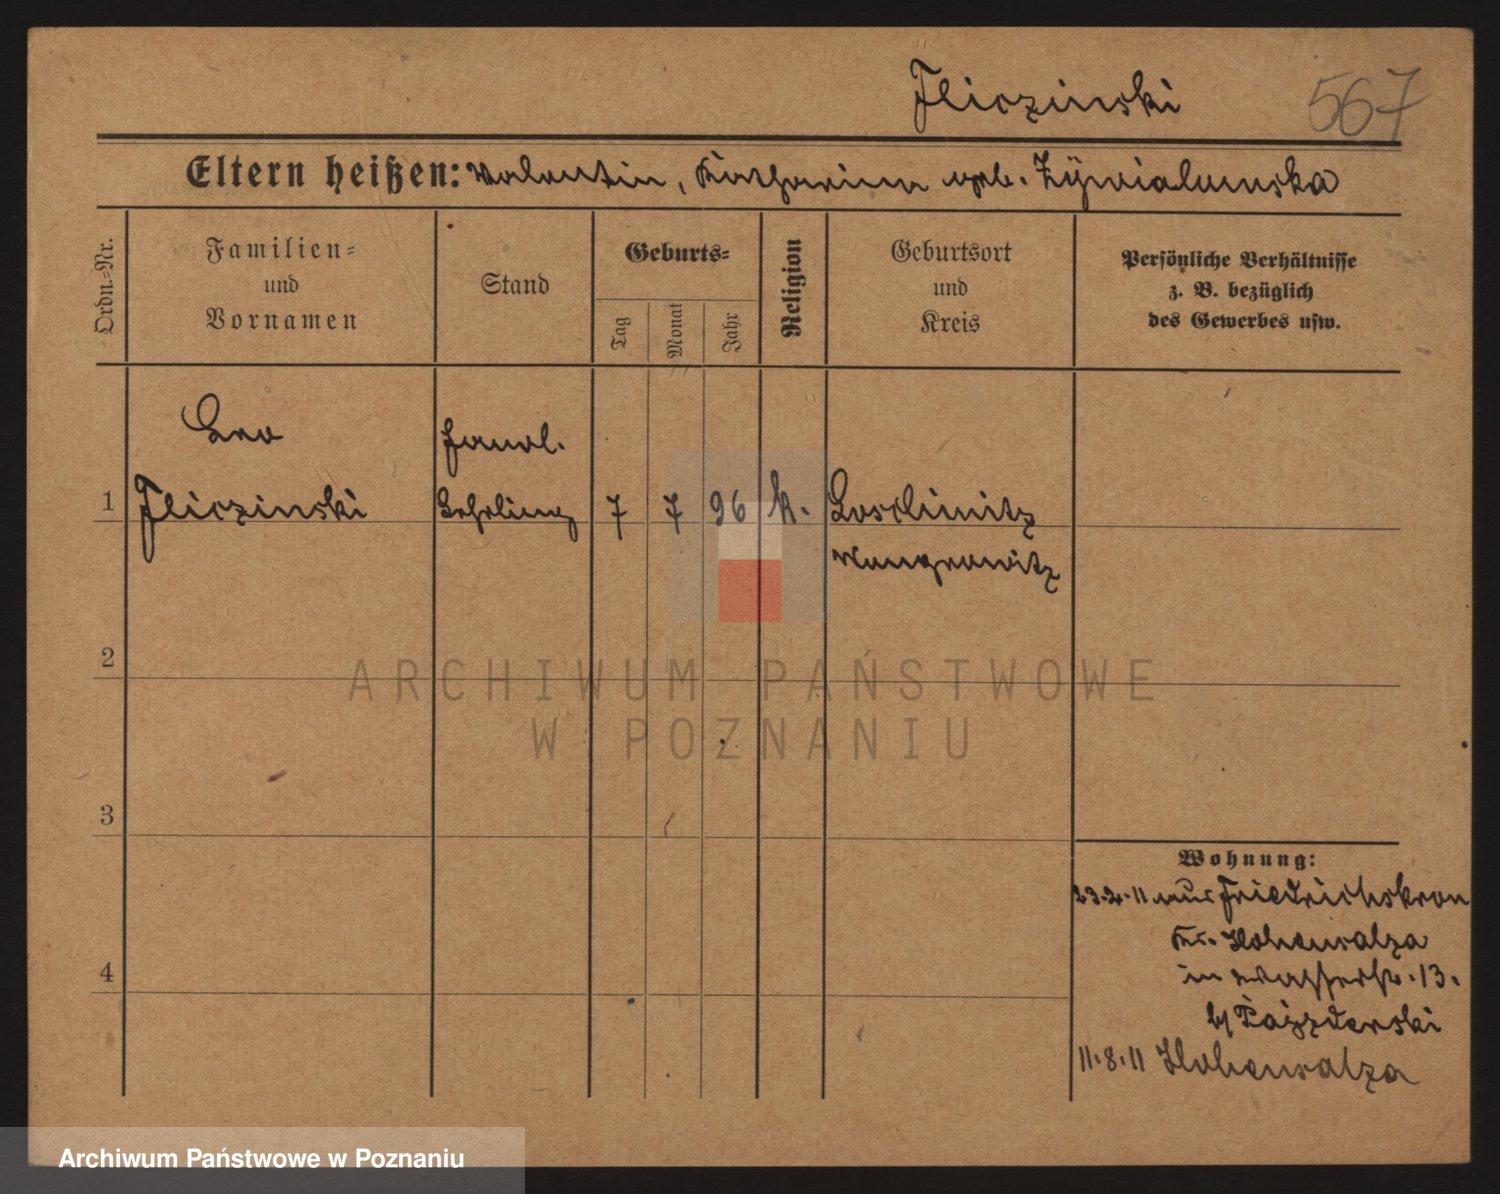 Fliczinski 567
Eltern heißen: Valentin, Katharina geb. Zÿwialumska
Ordn.-Nr.
Familien-
und
Vornamen
Stand
Geburts-
Tag
Monat
Jahr
Religion
Geburtsort
und
Kreis
Persönliche Verhältnisse
z. B. bezüglich
des Gewerbes usw.
Leo
Handl.
1 Fliczinski Lehrling 7 7 96 k. Losslinitz
Wongrowitz
2
3
4
Wohnung:
23.2.11 aus Friedrichskron
Kr. Hohensalza
in Wasserstr. 13.
b/ Pażzderski
11.8.11 Hohensalza
ARCHIWUM PAŃSTWOWE
W POZNANIU
Archiwum Państwowe w Poznaniu